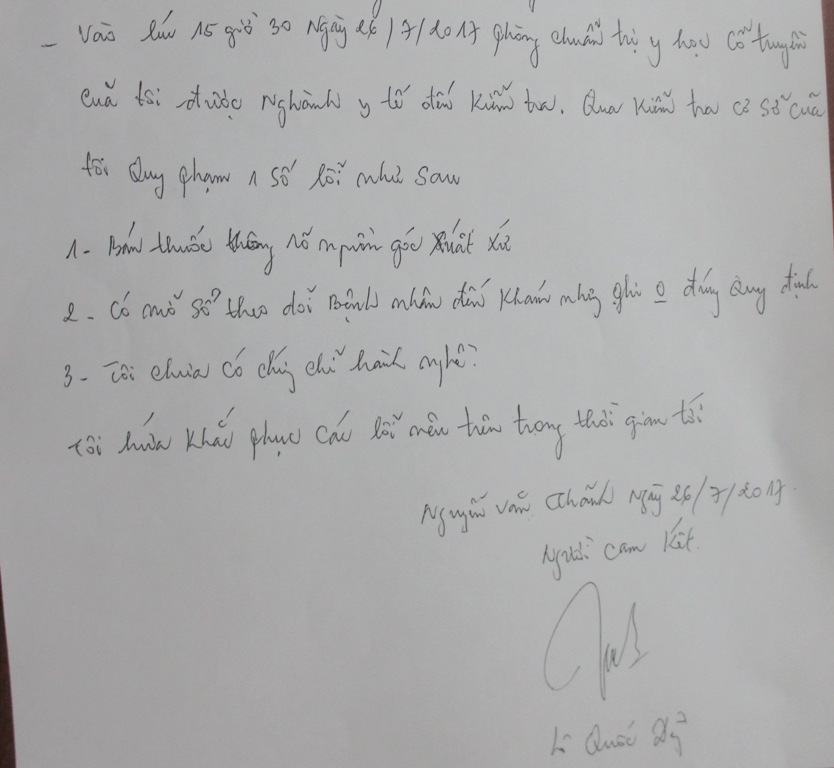 - Vào lúc 15 giờ 30 Ngày 26/7/2017 phòng chuẩn trị y học cổ truyền
cuả tôi được Nghành y tế đến kiểm tra. Qua kiểm tra cơ sỡ cuã
tôi Quy phạm 1 số lỗi như sau
1- Bán thuốc không rõ nguồn gốc xuất xứ
2- Có mỡ sổ theo dõi Bệnh nhân đến khám nhưg ghi o đúng Quy định
3- Tôi chưa có chứg chỉ hành nghề.
Tôi hứa khắc phục các lỗi nêu trên trong thời gian tới
Nguyễn Văn Thành Ngày 26/7/2017.
Người cam kết.
Quốc